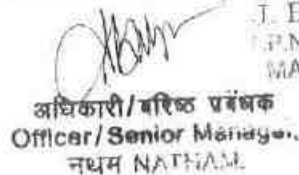 अधिकारी/वरिष्ठ प्रबंधक
Officer/Senior Manager
नथम NATHAM